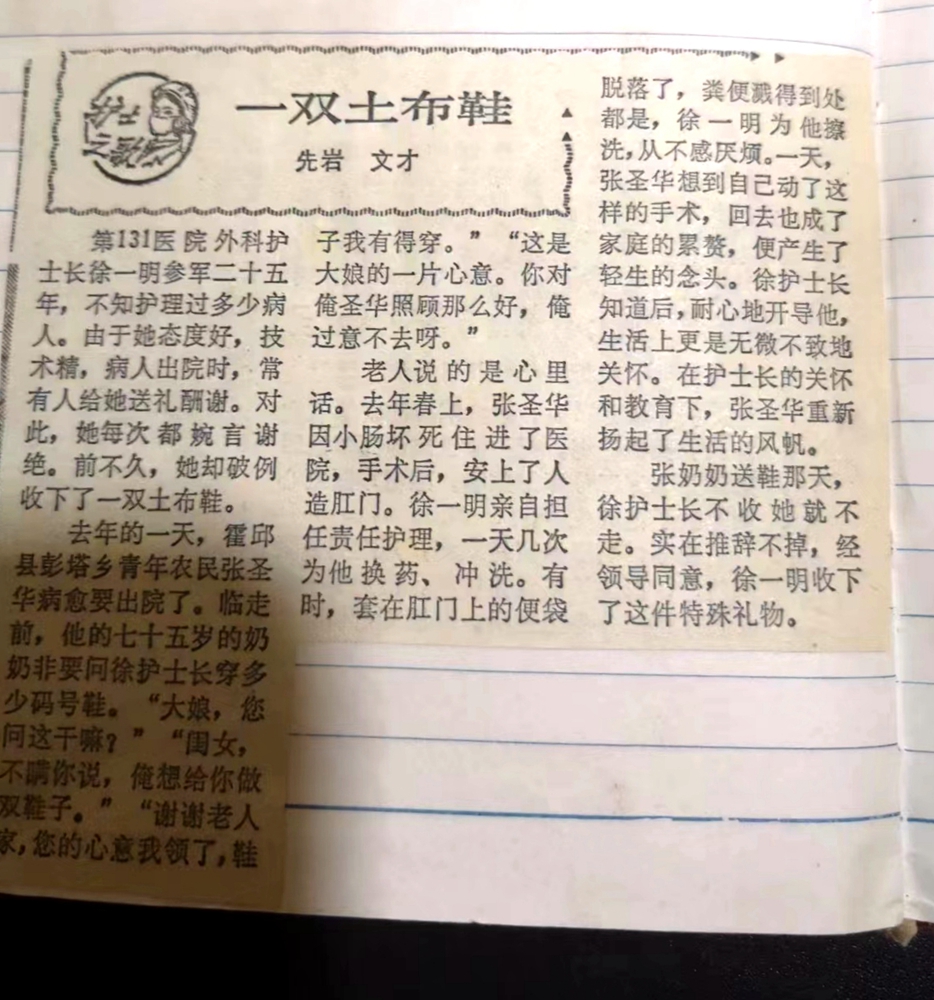 一双土布鞋
先岩 文才
第131医院外科护
士长徐一明参军二十五
年，不知护理过多少病
人。由于她态度好，技
术精，病人出院时，常
有人给她送礼酬谢。对
此，她每次都婉言谢
绝。前不久，她却破例
收下了一双土布鞋。
去年的一天，霍邱
县彭塔乡青年农民张圣
华病愈要出院了。临走
前，他的七十五岁的奶
奶非要问徐护士长穿多
少码号鞋。“大娘，您
问这干嘛？”“闺女，
不瞒你说，俺想给你做
双鞋子。”“谢谢老人
家，您的心意我领了，鞋
子我有得穿。”“这是
大娘的一片心意。你对
俺圣华照顾那么好，俺
过意不去呀。”
老人说的是心里
话。去年春上，张圣华
因小肠坏死住进了医
院，手术后，安上了人
造肛门。徐一明亲自担
任责任护理，一天几次
为他换药、冲洗。有
时，套在肛门上的便袋
脱落了，粪便溅得到处
都是，徐一明为他擦
洗，从不感厌烦。一天，
张圣华想到自己动了这
样的手术，回去也成了
家庭的累赘，便产生了
轻生的念头。徐护士长
知道后，耐心地开导他，
生活上更是无微不致地
关怀。在护士长的关怀
和教育下，张圣华重新
扬起了生活的风帆。
张奶奶送鞋那天，
徐护士长不收她就不
走。实在推辞不掉，经
领导同意，徐一明收下
了这件特殊礼物。